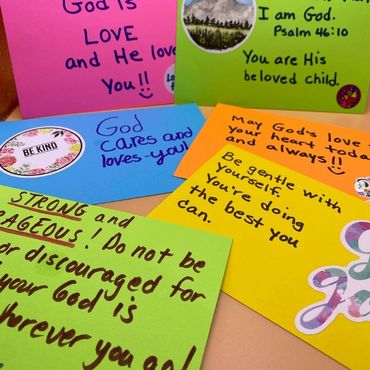 God is
LOVE
and He lov
You!!
I am God.
Psalm 46:10
You are His
beloved child.
BE KIND
God
cares and
loves you!
May God's love
your heart today
and always!!
Be gentle with
yourself.
You're doing
the best you
can.
STRONG and
AGEOUS! Do not be
or discouraged for
your God is
wherever you go!